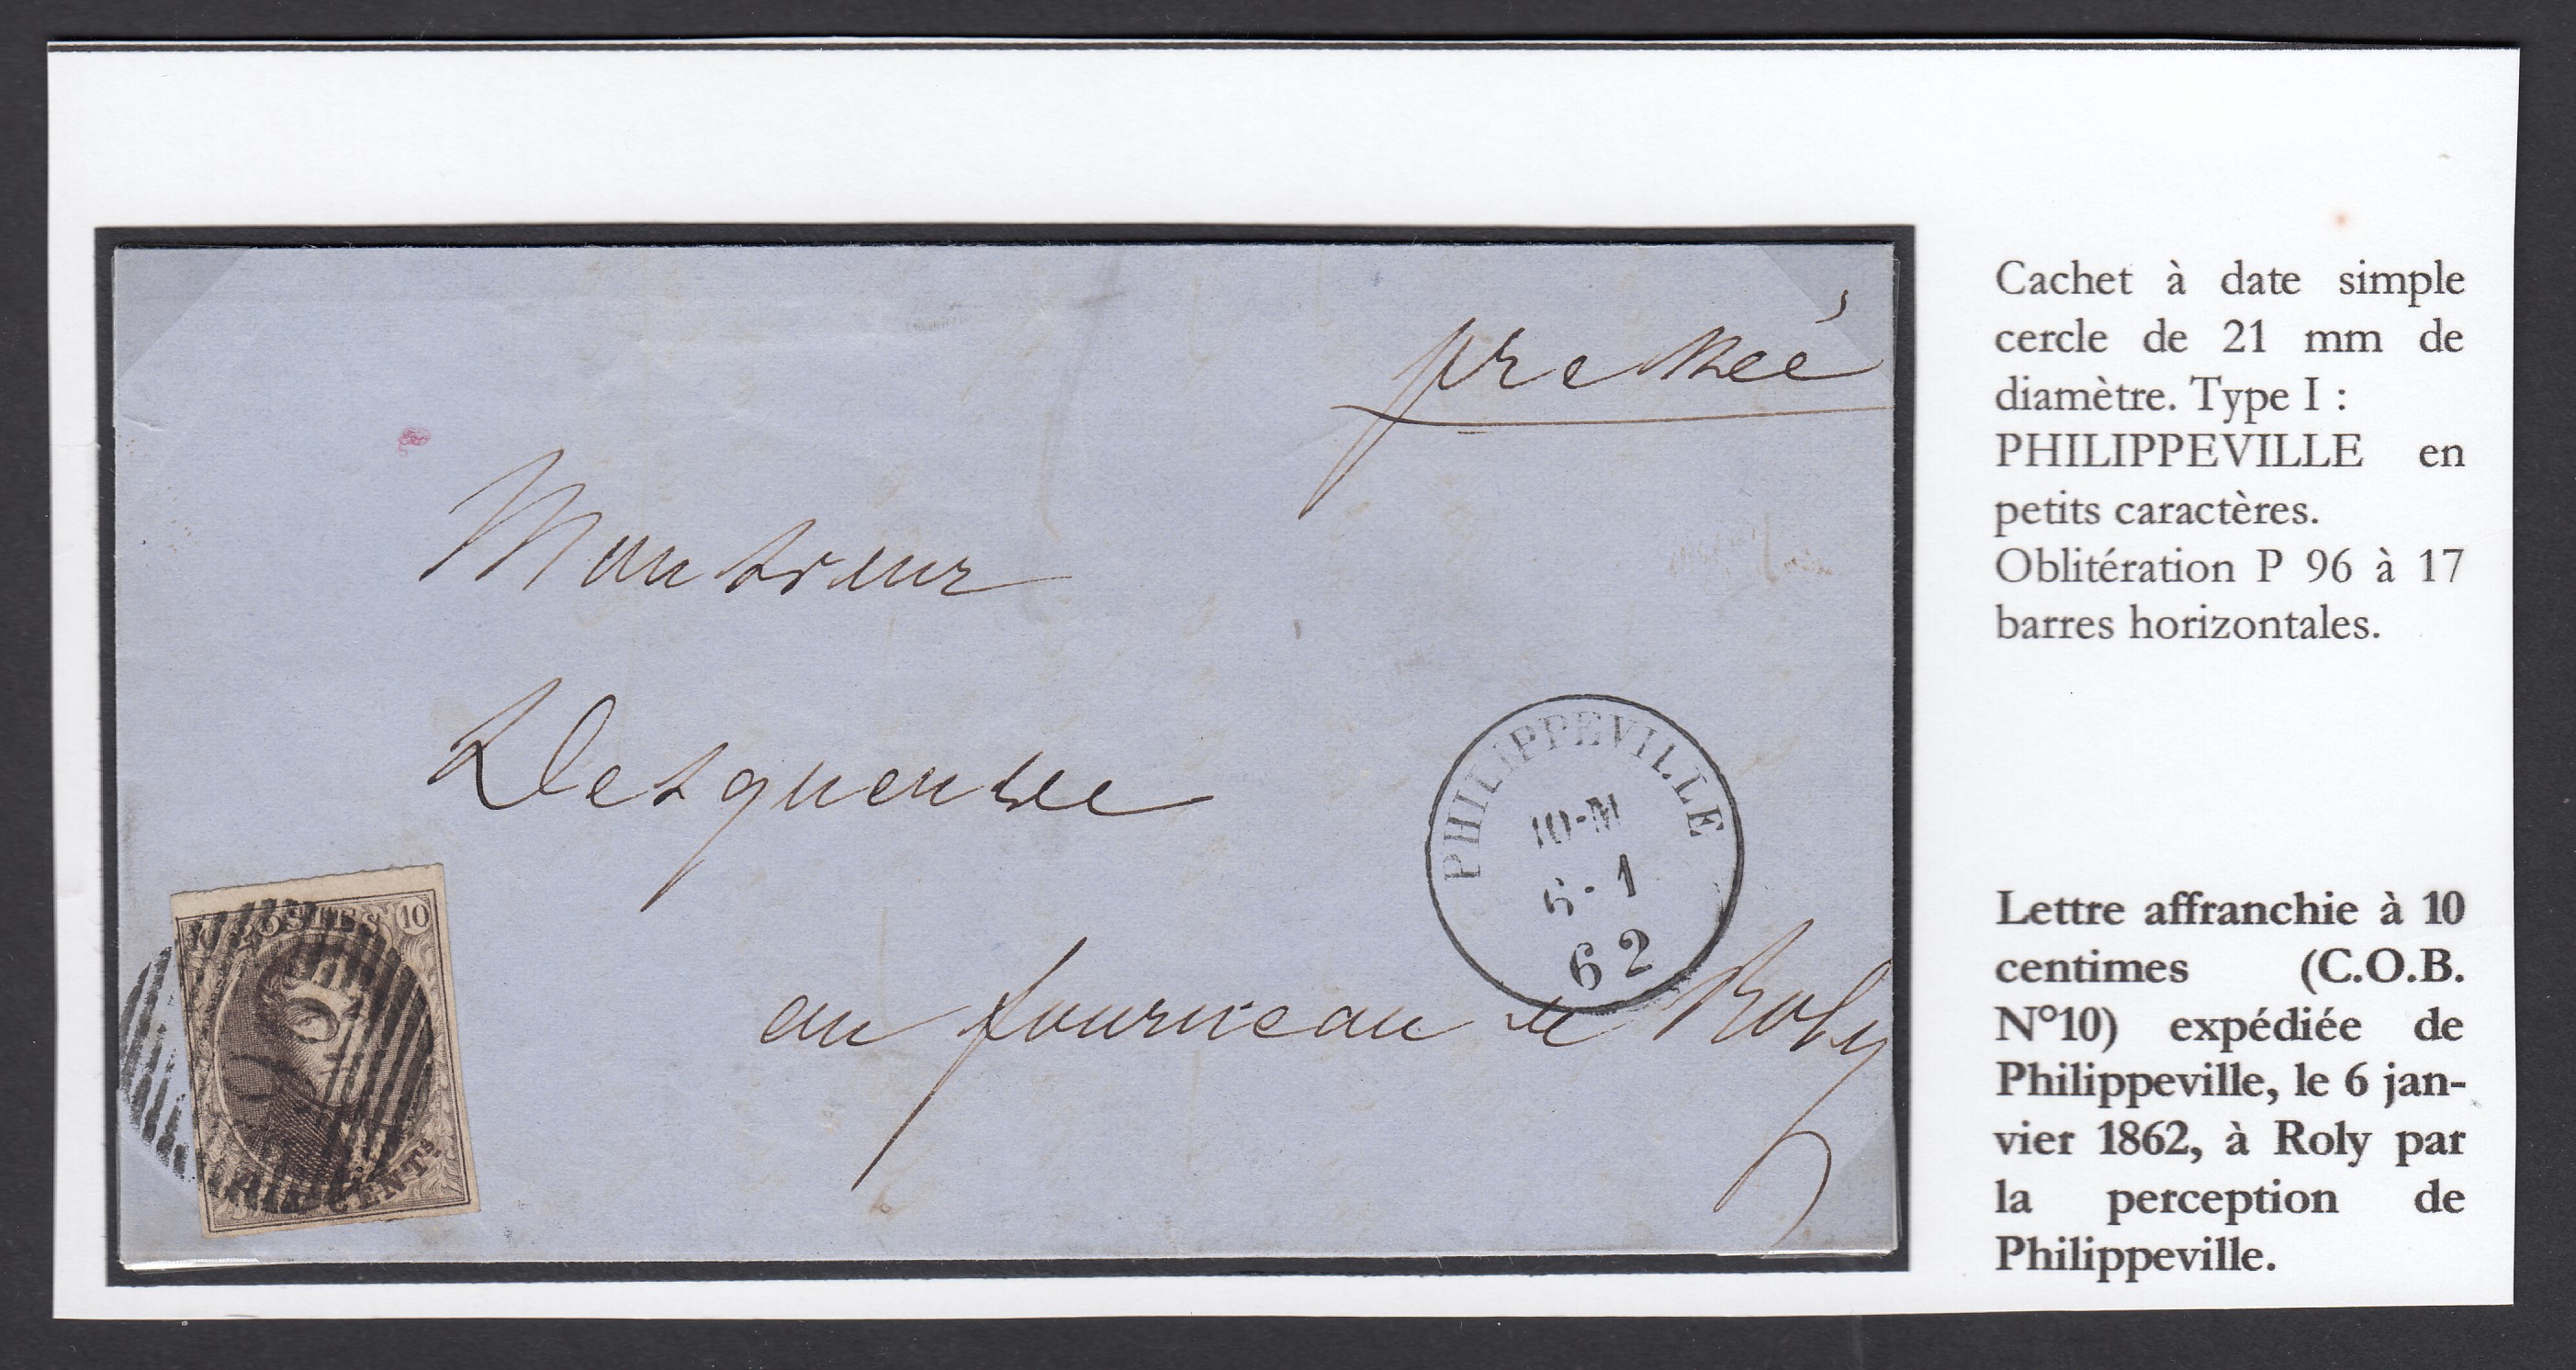 pressée
Monsieur
Desquenne
au fourneau de Roly
PHILIPPEVILLE
10-M
6-1
62
POSTES 10
CENTS
Cachet à date simple
cercle de 21 mm de
diamètre. Type I :
PHILIPPEVILLE en
petits caractères.
Oblitération P 96 à 17
barres horizontales.
Lettre affranchie à 10
centimes (C.O.B.
N°10) expédiée de
Philippeville, le 6 jan-
vier 1862, à Roly par
la perception de
Philippeville.